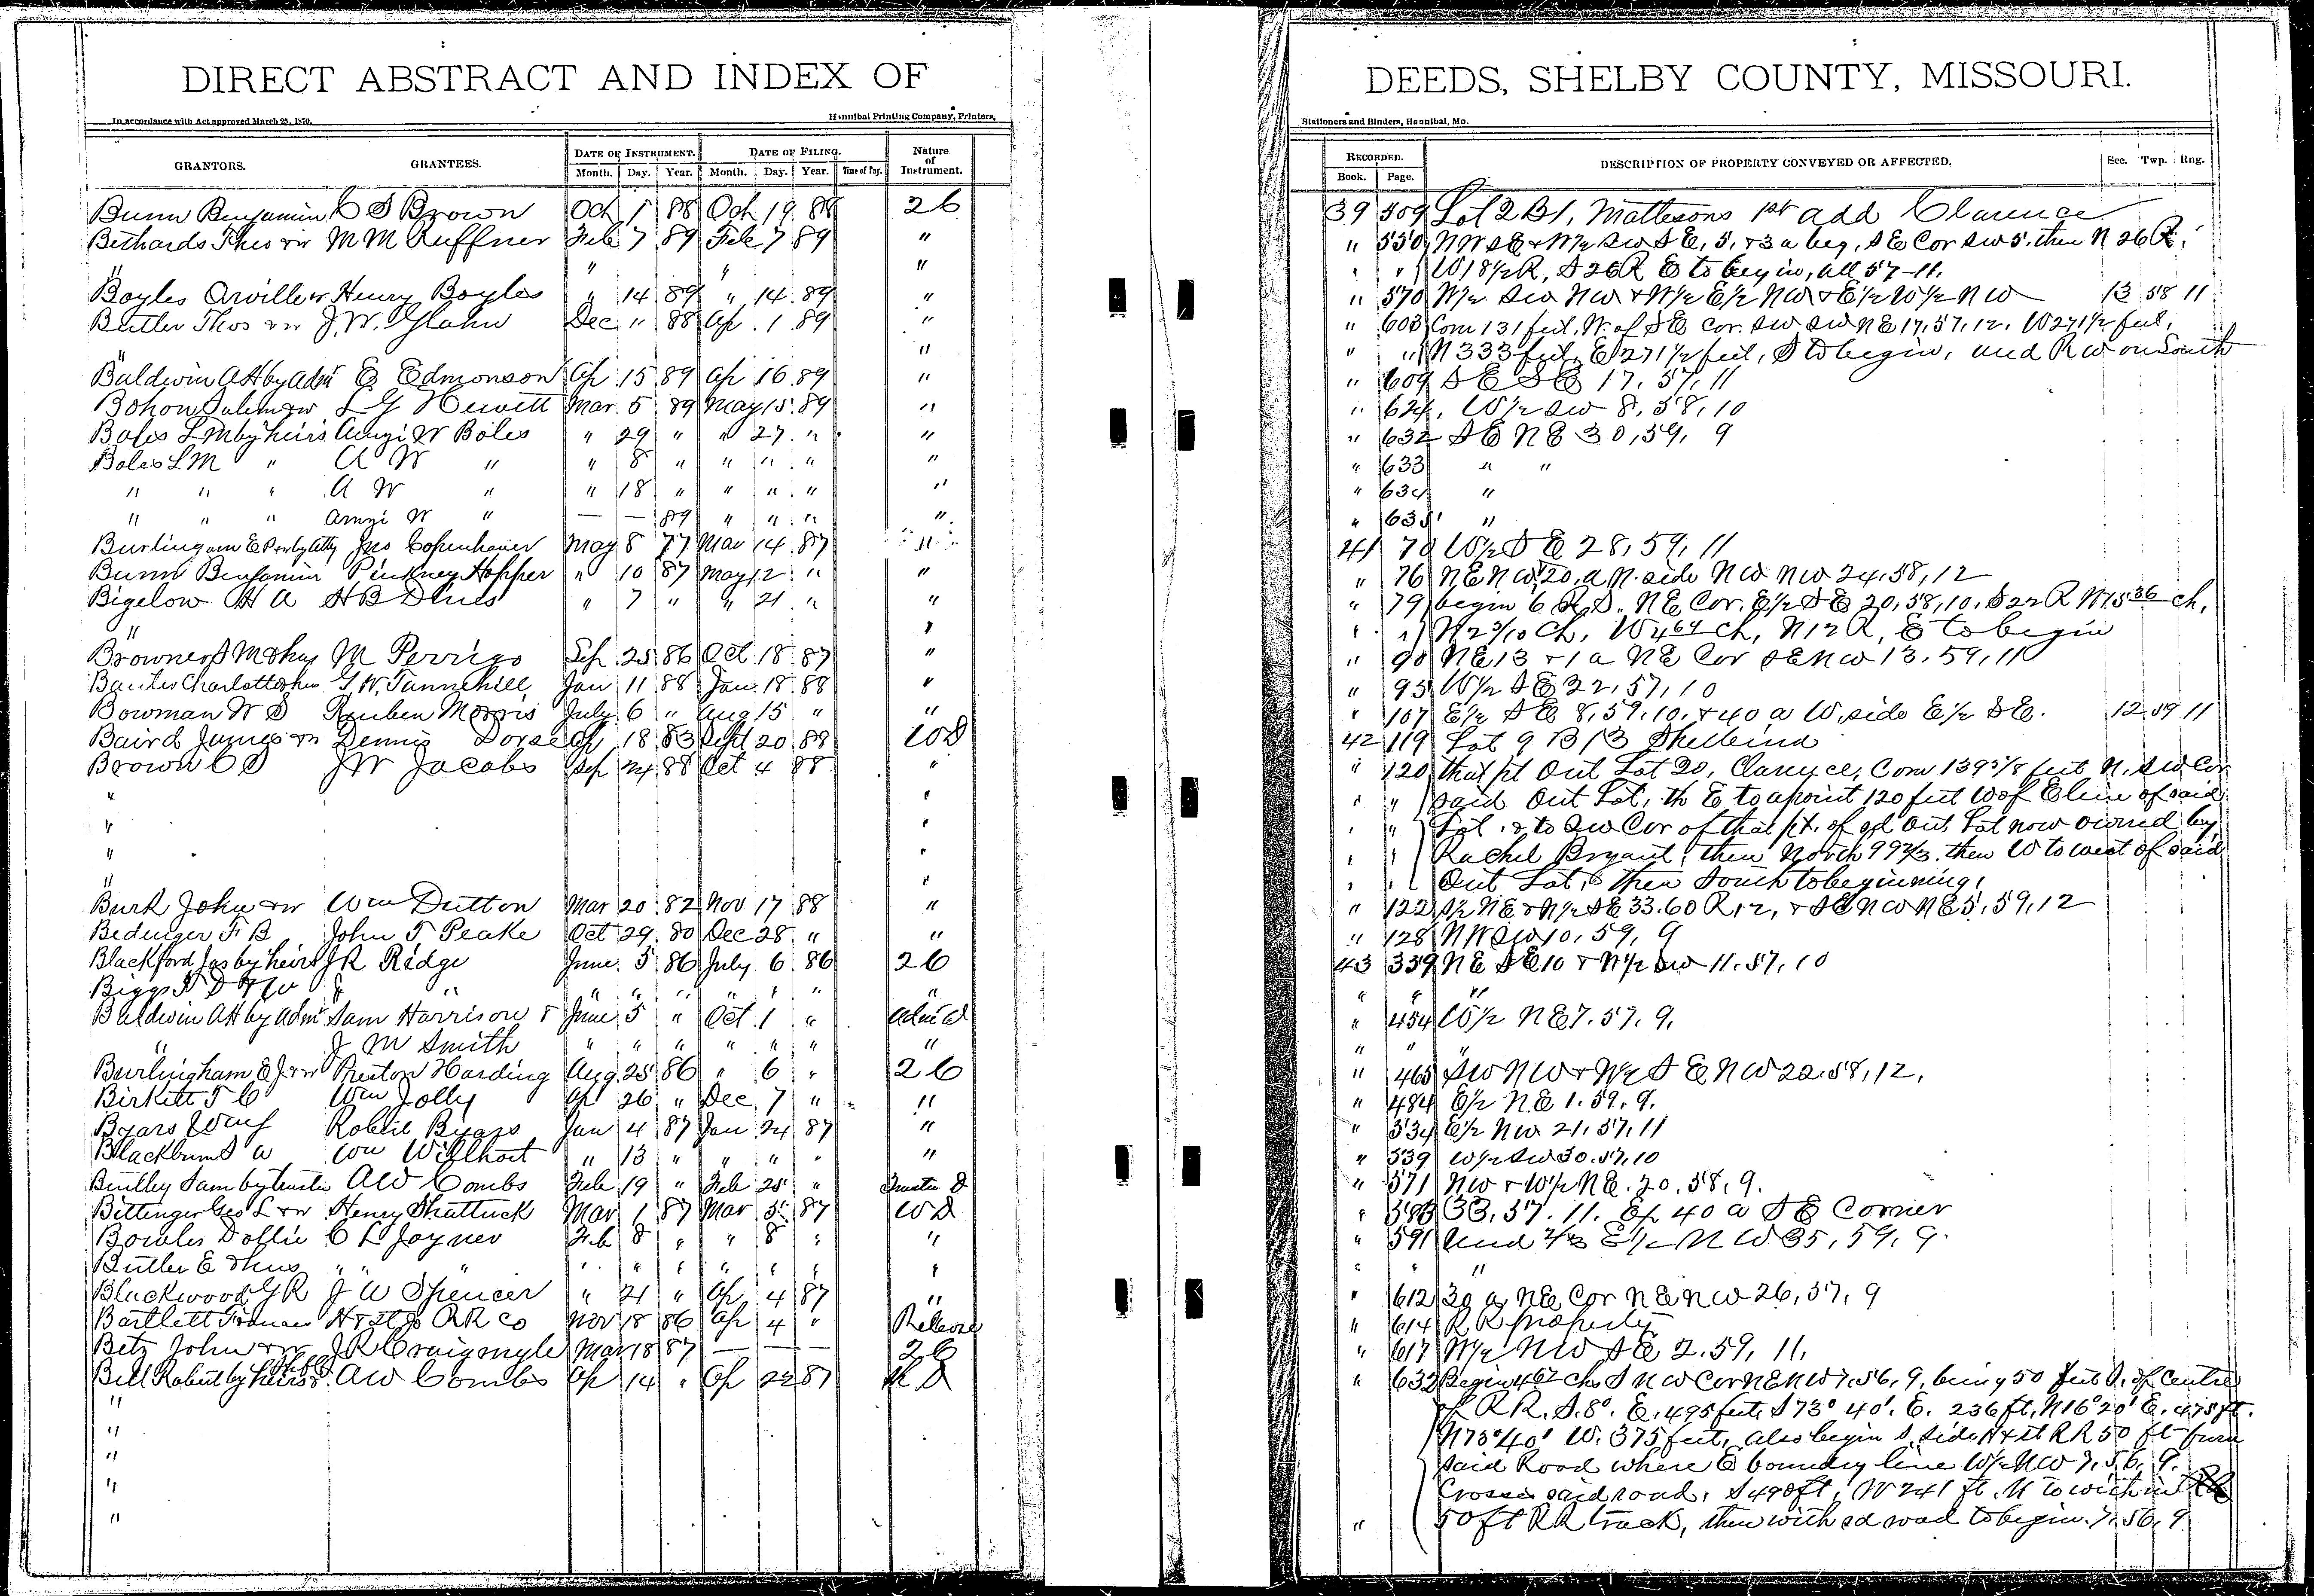 DIRECT ABSTRACT AND INDEX OF
In accordance with Act approved March 25, 1870. Hannibal Printing Company, Printers,
GRANTORS. GRANTEES. DATE OF INSTRUMENT. DATE OF FILING. Nature of Instrument.
Month. Day. Year. Month. Day. Year. Time of Day.
Bunn Benjamin C S Brown Oct 1 88 Oct 19 88 26
Bethards Thos & w M M Ruffner Feb 7 89 Feb 7 89 "
" " " "
Boyles Orville & w Henry Boyles " 14 89 " 14 89 "
Butler Thos & w J. W. Glahn Dec " 88 Ap 1 89 "
" "
Baldwin A H by Adm E Edmonson Ap 15 89 Ap 16 89 "
Bohon & w L G Hewitt Mar 5 89 May 15 89 "
Boles L M by heirs Amzi W Boles " 29 " " 27 " "
Boles L M " A W " " 8 " " " " "
" " " A W " " 18 " " " " "
" " " Amzi W " — — 89 " " " "
Burlingam E & w by Atty Jno Copenhaver May 8 77 Mar 14 87 "
Bunn Benjamin Pinkney Hopper " 10 87 May 12 " "
Bigelow H A H B " 7 " " 21 " "
" "
Browner S M & hus M Perrigo Sep 25 86 Oct 18 87 "
Charlotte & hus G. W. Tannehill Jan 11 88 Jan 18 88 "
Bowman W S Reuben Morris July 6 " Aug 15 " "
Baird James & w Dennis Dorsey Ap 18 83 Sept 20 88 WD
Brown C S J W Jacobs Sep 24 88 Oct 4 88 "
" "
" "
" "
" "
Burk John & w Wm Dutton Mar 20 82 Nov 17 88 "
Bedinger F B John T Peake Oct 29 80 Dec 28 " "
Blackford Jas by heirs J R Ridge June 5 86 July 6 86 26
Biggs & W " " " " " " " " "
Baldwin A H by Adm Sam Harrison & June 5 " Oct 1 " Adm D
" J M Smith " " " " " " "
Burlingham E J & w Preston Harding Aug 25 86 " 6 " 26
Birkett T C Wm Jolly Ap 26 " Dec 7 " "
Byars Robert Byars Jan 4 87 Jan 24 87 "
Blackburn S W Wm Willhoit " 13 " " " " "
Sam by trustee A W Combs Feb 19 " Feb 25 " Trustee D
Bittinger Geo L & w Henry Shattuck Mar 1 87 Mar 5 87 WD
Bowles Dollie C L Joyner Feb 8 " " 8 " "
Butler E & hus " " " " " " " " "
Blackwood G R J W Spencer " 21 " Ap 4 87 "
Bartlett Frances H & St Jo RR Co Nov 18 86 Ap 4 " Release
Betz John & w J R Craigmyle Mar 18 87 — — — 26
Bell Robert by heirs A W Combs Ap 14 " Ap 22 87 D
"
"
"
"
"
DEEDS, SHELBY COUNTY, MISSOURI.
Stationers and Binders, Hannibal, Mo.
RECORDED. DESCRIPTION OF PROPERTY CONVEYED OR AFFECTED. Sec. Twp. Rng.
Book. Page.
39 509 Lot 2 B 1, Mattesons 1st add Clarence
" 550 NW SE & W½ SW SE, 5, & 3 a beg. SE Cor SW 5. then N 26 R.
" " W 18½ R, S 26 R E to begin, all 57-11.
" 570 W½ SW NW & W½ E½ NW & E½ W½ NW 13 58 11
" 603 Com 131 feet W. of SE Cor. SW SW NE 17, 57, 12, W 271½ feet,
" " N 333 feet, E 271½ feet, S to begin, and RW on South
" 609 SE SE 17, 57, 11
" 624 W½ SW 8, 58, 10
" 632 SE NE 30, 59, 9
" 633 " "
" 634 "
" 635 "
41 70 W½ SE 28, 59, 11
" 76 NE NW, 20 a N. side NW NW 24, 58, 12
" 79 begin 6 R S. NE Cor. E½ SE 20, 58, 10, S 22 R W 15 36 ch,
" " N 2 5/10 Ch, W 4 64 Ch, N 12 R, E to begin
" 90 NE 13 & 1 a NE Cor SE NW 13, 59, 11
" 95 W½ SE 22, 57, 10
" 107 E½ SE 8, 59, 10, & 40 a W. side E½ SE. 12 59 11
42 119 Lot 9 B 13 Shelbina
" 120 that pt Out Lot 20, Clarence, Com 139 5/8 feet N. SW Cor
" " said Out Lot, th E to a point 120 feet W of E line of said
" " Lot & to SW Cor of that pt. of sd Out Lot now owned by
" " Rachel Bryant, then North 99 2/3, then W to west of said
" " Out Lot, then South to beginning.
" 122 S½ NE & N½ SE 33. 60 R 12, & SE NW NE 5, 59, 12
" 128 NW SW 10, 59, 9
43 339 NE SE 10 & N½ SW 11, 57, 10
" " "
" 454 W½ NE 7, 57, 9.
" " "
" 465 SW NW & W½ SE NW 22, 58, 12.
" 484 E½ NE 1, 59, 9.
" 534 E½ NW 21, 57, 11
" 539 W½ SW 30, 57, 10
" 571 NW & W½ NE. 20, 58, 9.
" 583 33, 57, 11. Ex 40 a SE Corner
" 591 Und 2/3 E½ NW 35, 59, 9.
" " "
" 612 30 a NE Cor NE NW 26, 57, 9
" 614 R R Property
" 617 W½ NW SE 2, 59, 11.
" 632 Begin 4 67 chs S NW Cor NE NW 7, 56, 9, being 50 feet S. of Centre
of RR. S. 8°. E. 495 feet, S 73° 40'. E. 236 ft, N 16° 20' E. 475 ft.
N 73° 40' W. 375 feet, also begin S. side H & St RR 50 ft from
said Road where E boundry line W½ NW 7, 56, 9.
Crosses said road, S 490 ft, W 241 ft. N to within
" 50 ft RR track, then with sd road to begin. 7, 56, 9